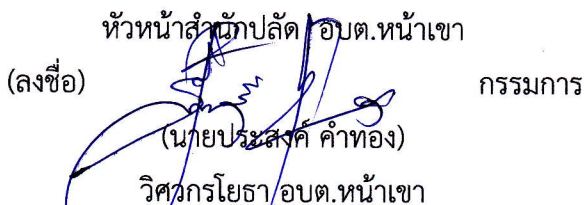 หัวหน้าสำนักปลัด อบต.หน้าเขา
(ลงชื่อ) กรรมการ
(นายประสงค์ คำทอง)
วิศวกรโยธา อบต.หน้าเขา